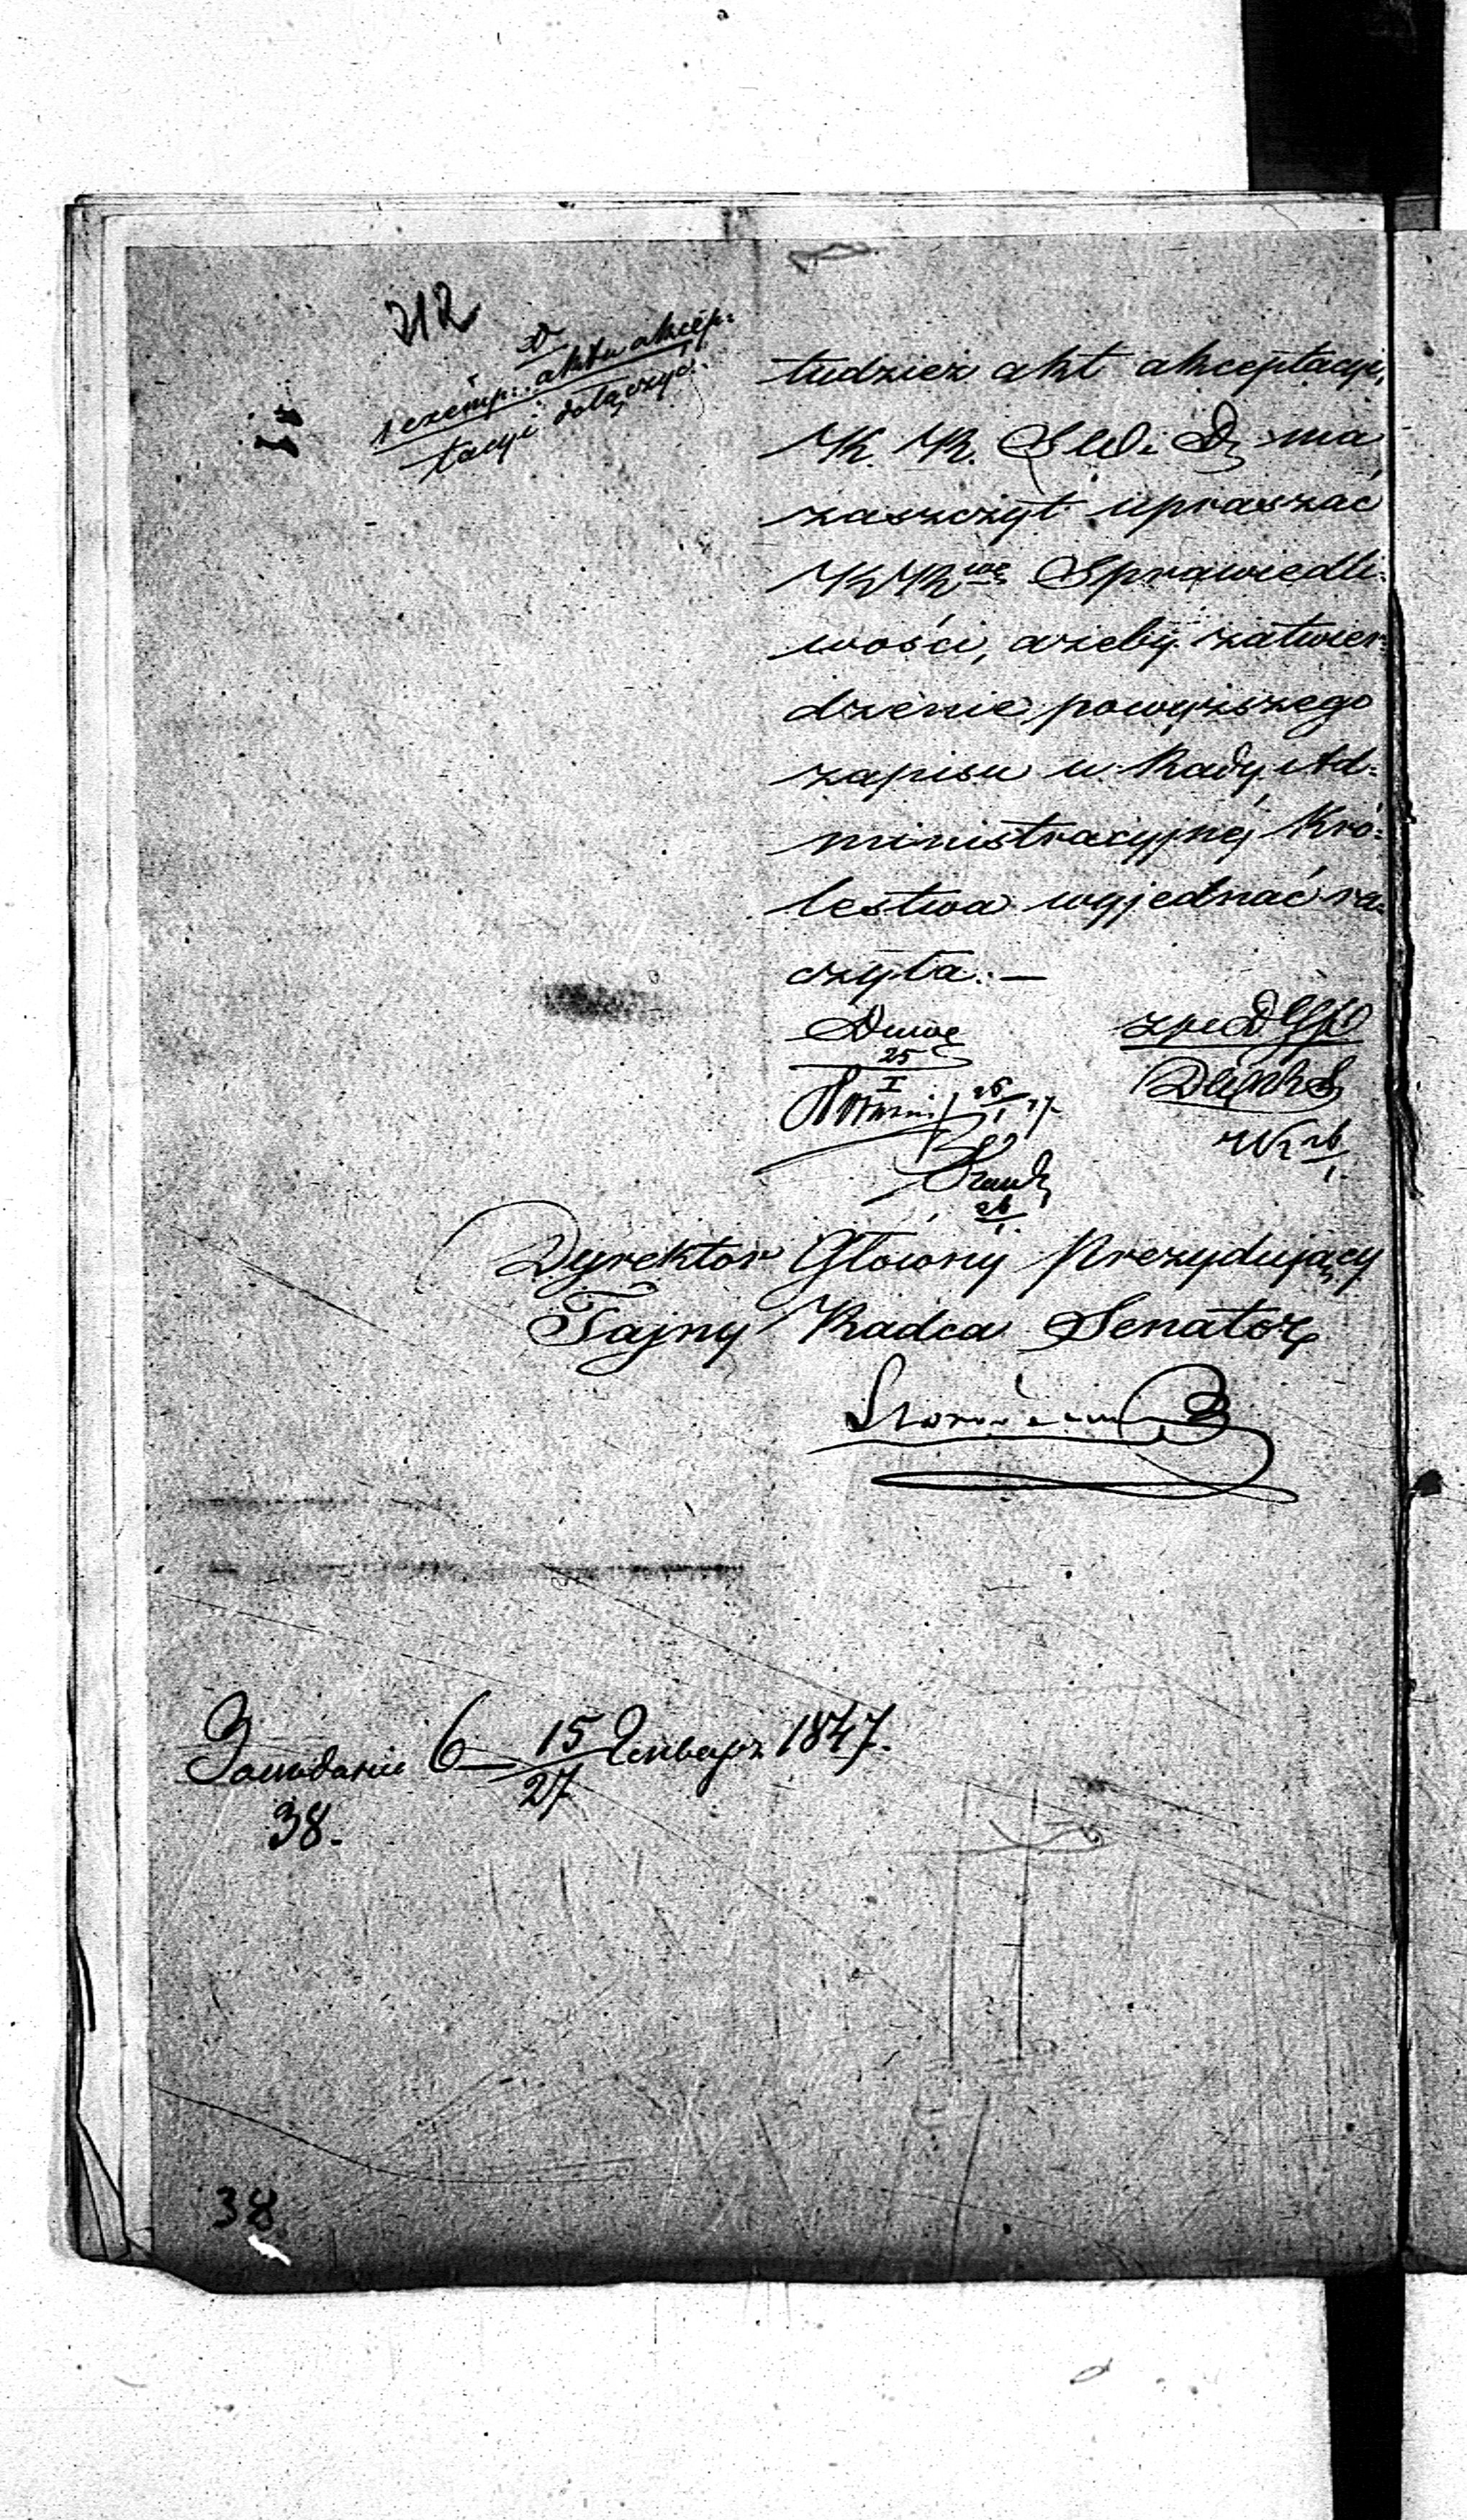 212
1 exemp: aktu akcep:
tacyi dołączyć.
tudzież akt akceptacyi,
K. R. S W i D ma
zaszczyt upraszać
K R Sprawiedli:
wości, ażeby zatwier:
dzenie powyższego
zapisu u Rady Ad:
ministracyjnéj Kró:
lestwa wyjednać ra:
czyła. —
25
I
26
I
26
I
26
I
Dyrektor Główny Prezydujący
Tajny Radca Senator
6 15/27 Генваря 1847.
38.
38